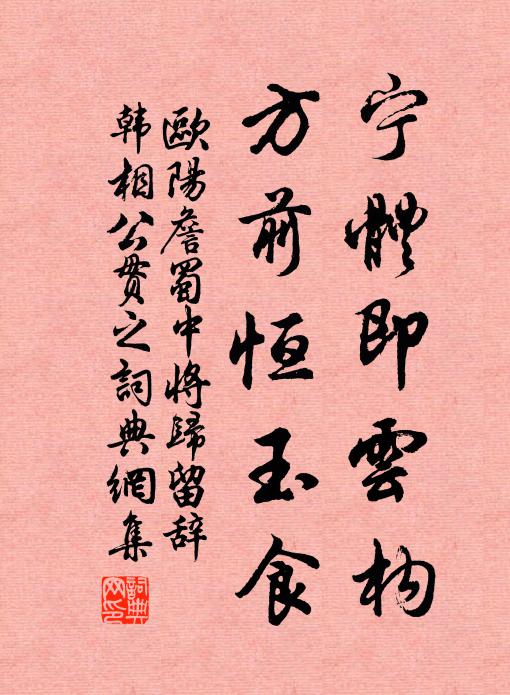 宁體即雲构
方前恒玉食
歐陽詹蜀中將歸留辞
韩相公贯之詞典網集
詞典網印